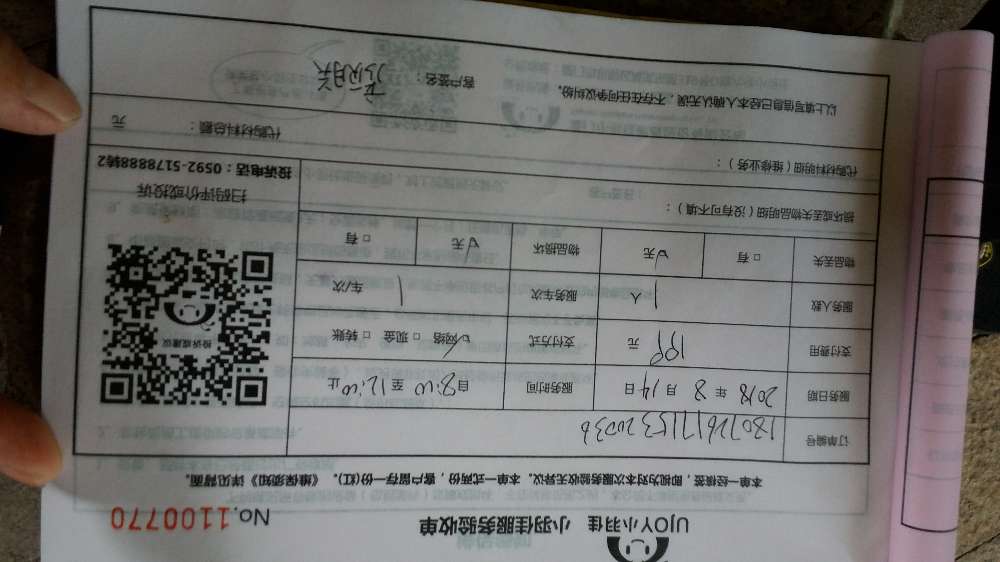 UJOY小羽佳 小羽佳服务验收单
No.1100770
本单一经签核，即视为对本次服务验收无异议。本单一式两份，客户留存一份(红)。《维保须知》详见背面。
订单编号
服务日期 2018 年 8 月 14 日 服务时间 自 8:00 至 12:00 止
支付费用 199 元 支付方式 ☑ 网络 □ 现金 □ 转账
服务人数 1 人 服务车次 1 车/次
物品丢失 □ 有 ☑ 无 物品损坏 ☑ 无 □ 有
损坏或丢失物品明细（没有可不填）：
投诉或建议
扫码评价或投诉
投诉电话：0592-5178888转2
代购材料明细（维修业务）：
代购材料总额： 元
以上填写信息已经本人确认无误，不存在任何争议纠纷。
客户签名：